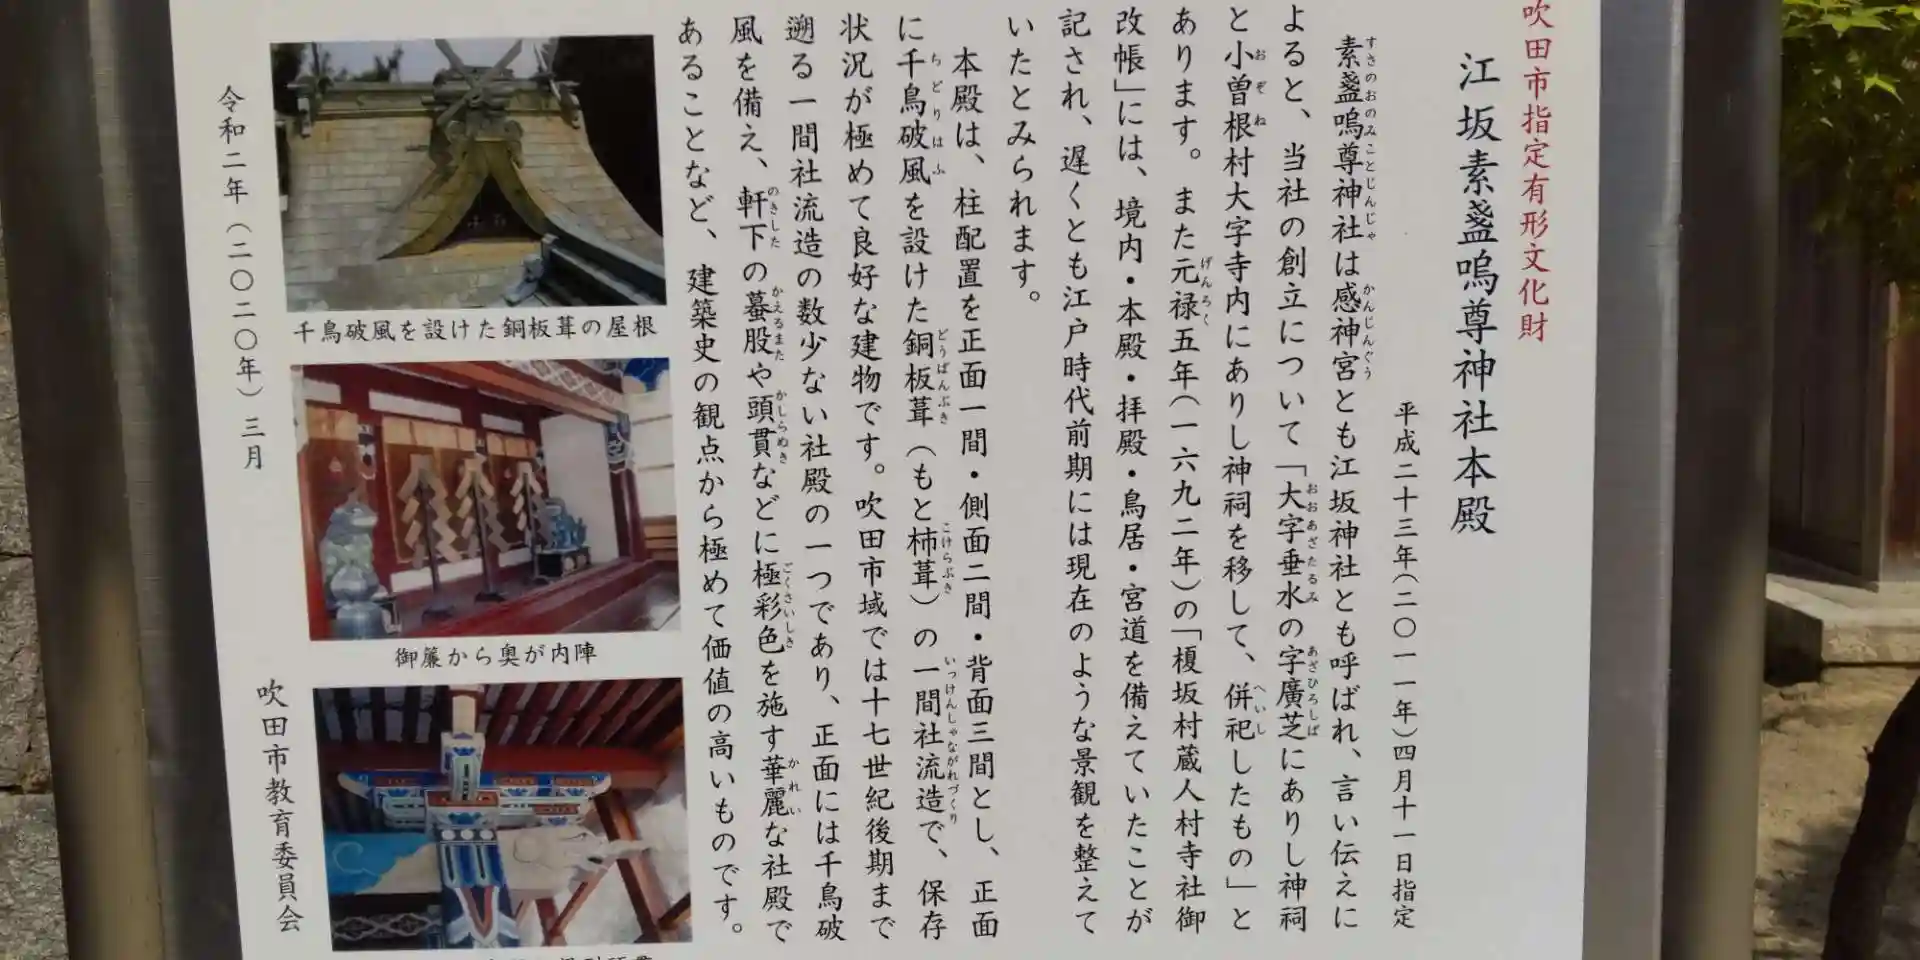 吹田市指定有形文化財
江坂素盞嗚尊神社本殿
平成二十三年(二〇一一年)四月十一日指定
素盞嗚尊神社は感神宮とも江坂神社とも呼ばれ、言い伝えに
よると、当社の創立について「大字垂水の字廣芝にありし神祠
と小曽根村大字寺内にありし神祠を移して、併祀したもの」と
あります。また元禄五年(一六九二年)の「榎坂村蔵人村寺社御
改帳」には、境内・本殿・拝殿・鳥居・宮道を備えていたことが
記され、遅くとも江戸時代前期には現在のような景観を整えて
いたとみられます。
本殿は、柱配置を正面一間・側面二間・背面三間とし、正面
に千鳥破風を設けた銅板葺(もと杮葺)の一間社流造で、保存
状況が極めて良好な建物です。吹田市域では十七世紀後期まで
遡る一間社流造の数少ない社殿の一つであり、正面には千鳥破
風を備え、軒下の蟇股や頭貫などに極彩色を施す華麗な社殿で
あることなど、建築史の観点から極めて価値の高いものです。
千鳥破風を設けた銅板葺の屋根
御簾から奥が内陣
令和二年(二〇二〇年)三月
吹田市教育委員会